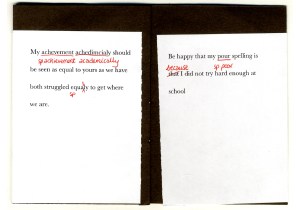 My achevement achedimicialy should
sp achievement academically
be seen as equal to yours as we have
both struggled equaly to get where
sp
we are.
Be happy that my pour spelling is
because sp poor
that I did not try hard enough at
school